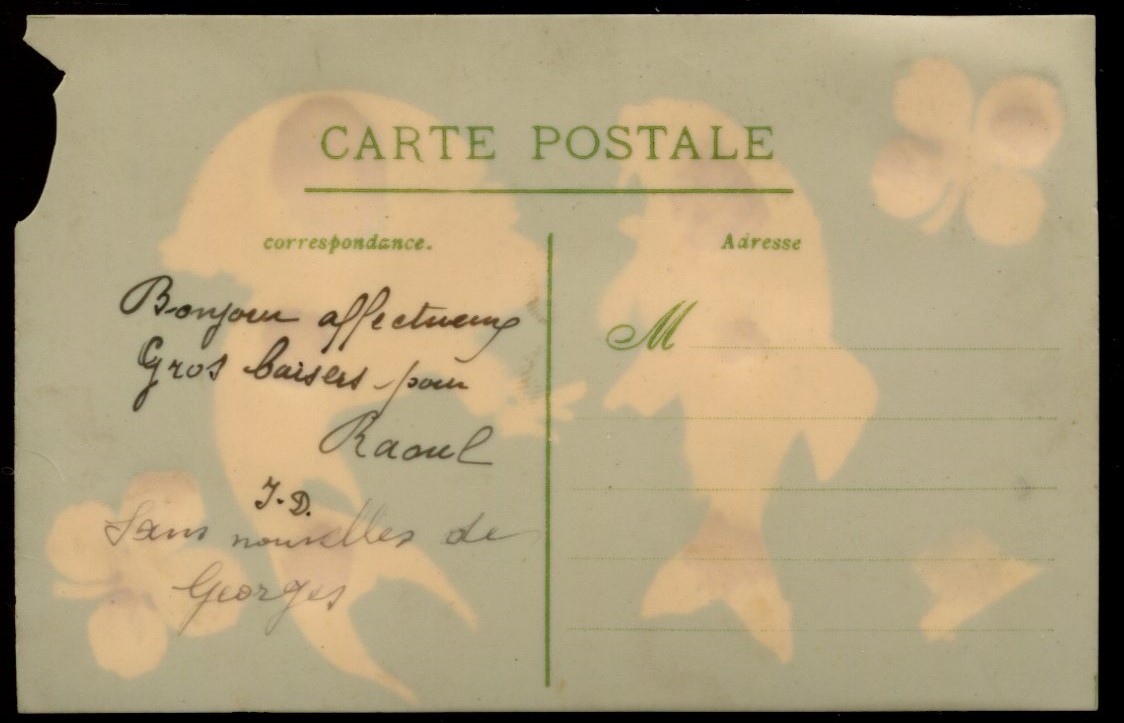 CARTE POSTALE
correspondance.
Bonjour affectueux
Gros baisers pour
Raoul
J.D.
Sans nouvelles de
Georges
Adresse
M